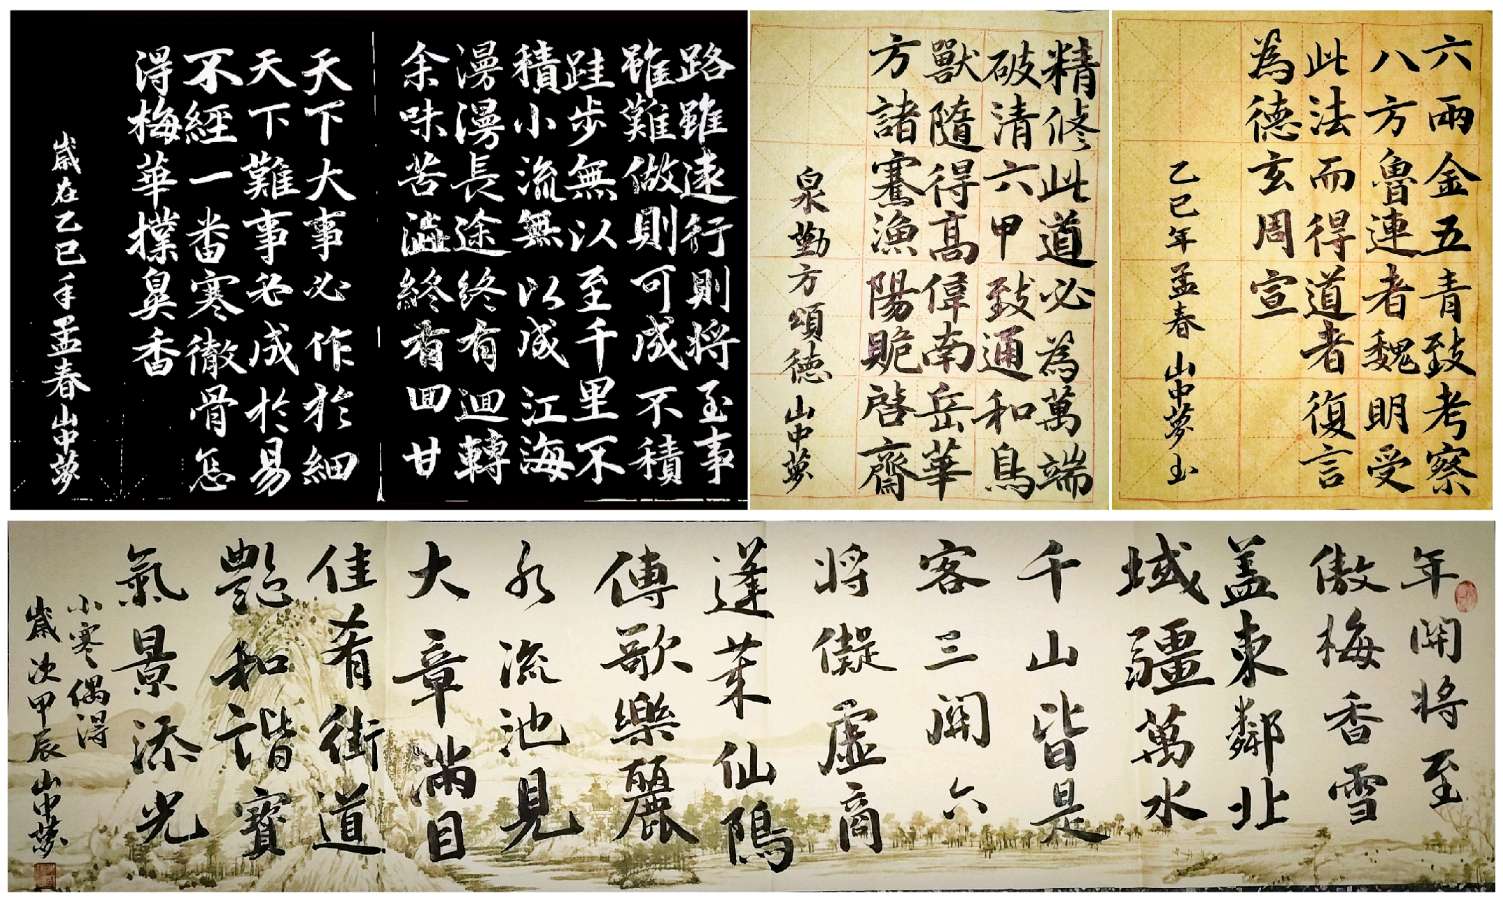 路雖遠行則將至事
雖難做則可成不積
跬步無以至千里不
積小流無以成江海
漫漫長途終有迴轉
余味苦澀終有回甘
天下大事必作於細
天下難事必成於易
不經一番寒徹骨怎
得梅華撲鼻香
歲在乙巳年孟春山中夢
精修此道必為萬端
破清六甲致通和鳥
獸隨得高偉南岳華
方諸騫漁陽跪啓齋
泉勤方頌德山中夢
六兩金五青致考察
八方魯連者魏明受
此法而得道者復言
為德玄周宣
乙巳年孟春山中夢玉
年開將至
傲梅香雪
蓋東鄰北
域疆萬水
千山皆是
客三開六
將儗虛商
蓬萊仙隖
傳歌樂麗
永流池見
大章滿目
佳肴街道
艷和諧寶
氣景添光
小寒偶得
歲次甲辰山中夢